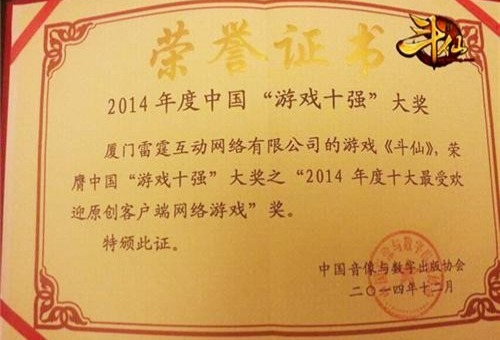 荣誉证书
斗仙
2014年度中国“游戏十强”大奖
厦门雷霆互动网络有限公司的游戏《斗仙》，荣
膺中国“游戏十强”大奖之“2014 年度十大最受欢
迎原创客户端网络游戏”奖。
特颁此证。
中国音像与数字出版协会
二〇一四年十二月